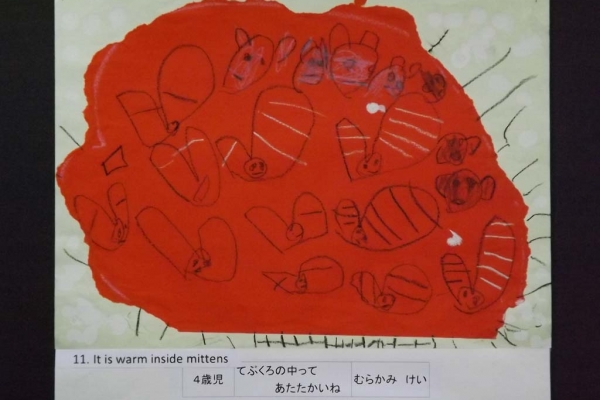 11. It is warm inside mittens
4歳児
てぶくろの中って
あたたかいね
むらかみ けい